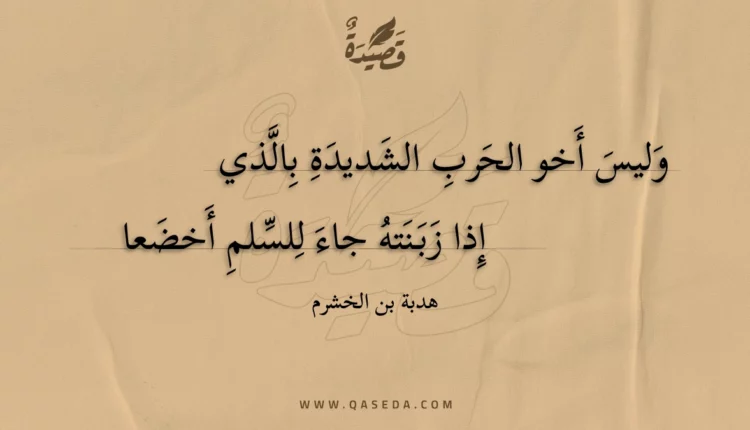 قَصِيْدَةٌ
وَليسَ أَخو الحَربِ الشَديدَةِ بِالَّذي
إِذا زَبَنَتهُ جاءَ لِلسِّلمِ أَخضَعا
هدبة بن الخشرم
WWW.QASEDA.COM